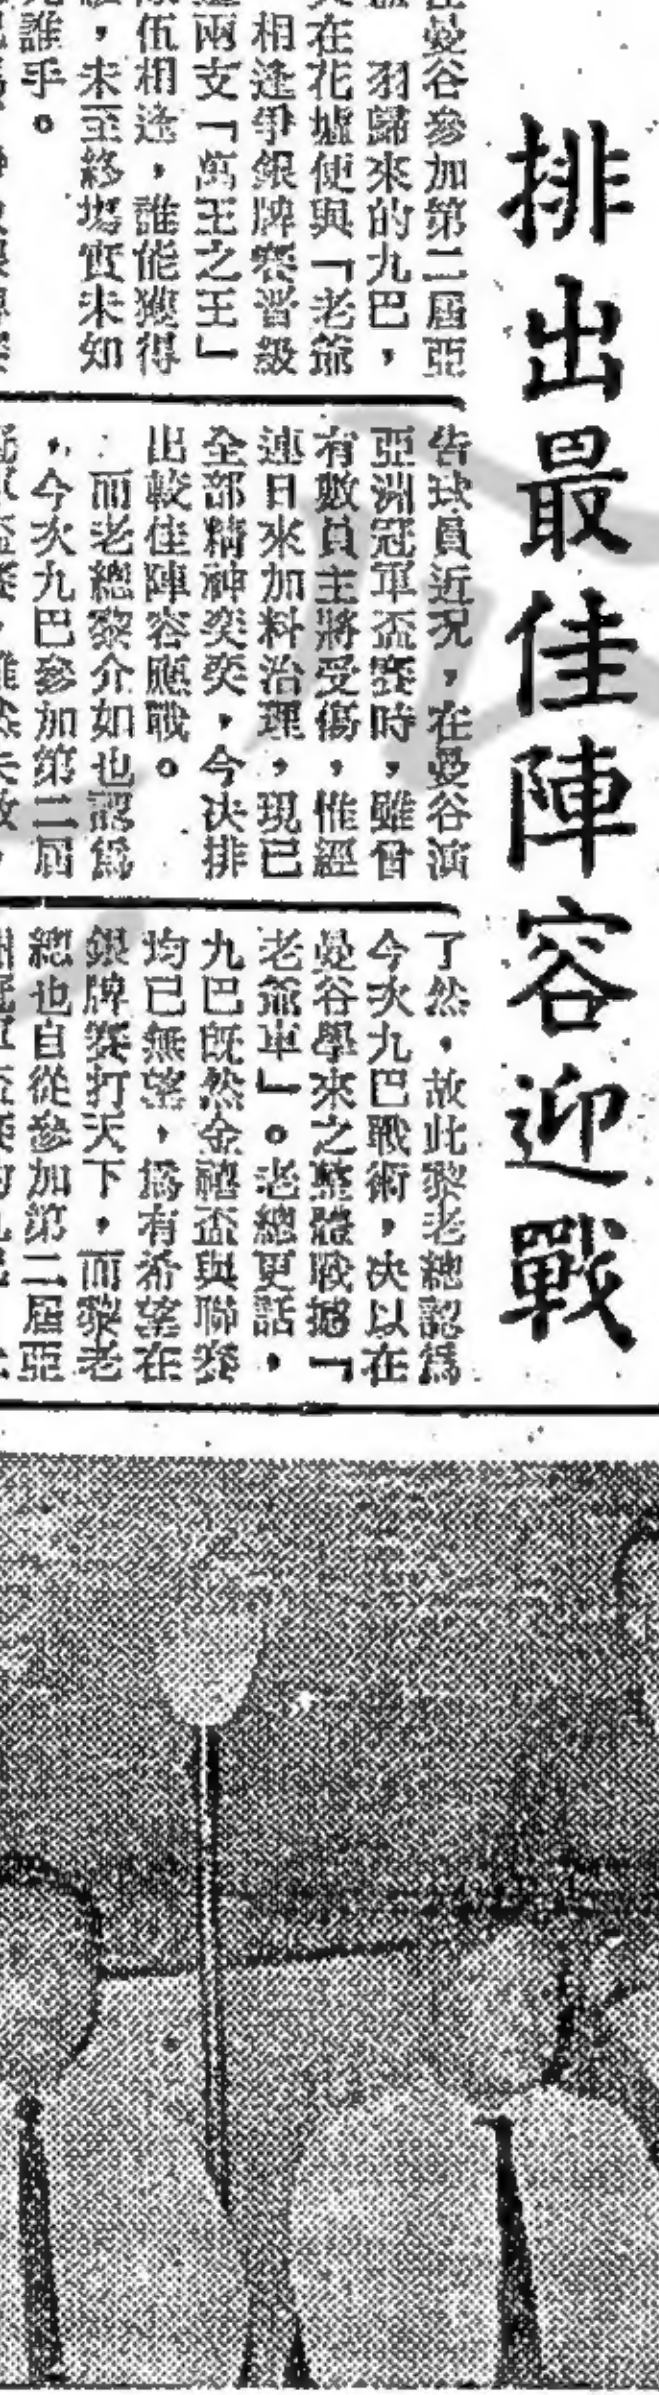 排出最佳陣容迎戰
曼谷參加第二屆亞
羽歸來的九巴，
在花墟便與「老爺
相逢爭銀牌賽晉級
兩支「萬王之王」
伍相逢，誰能獲得
，未至終場實未知
誰乎。
告球員近況，在曼谷演
亞洲冠軍盃賽時，雖曾
有數員主將受傷，惟經
連日來加料治理，現已
全部精神奕奕，今决排
出較佳陣容應戰。
而老總黎介如也認爲
，今次九巴參加第二屆
了然，故此黎老總認爲
今次九巴戰術，决以在
曼谷學來之整體戰撼「
老爺車」。老總更話，
九巴既然金禧盃與聯賽
均已無望，爲有希望在
銀牌賽打天下，而黎老
總也自從參加第二屆亞